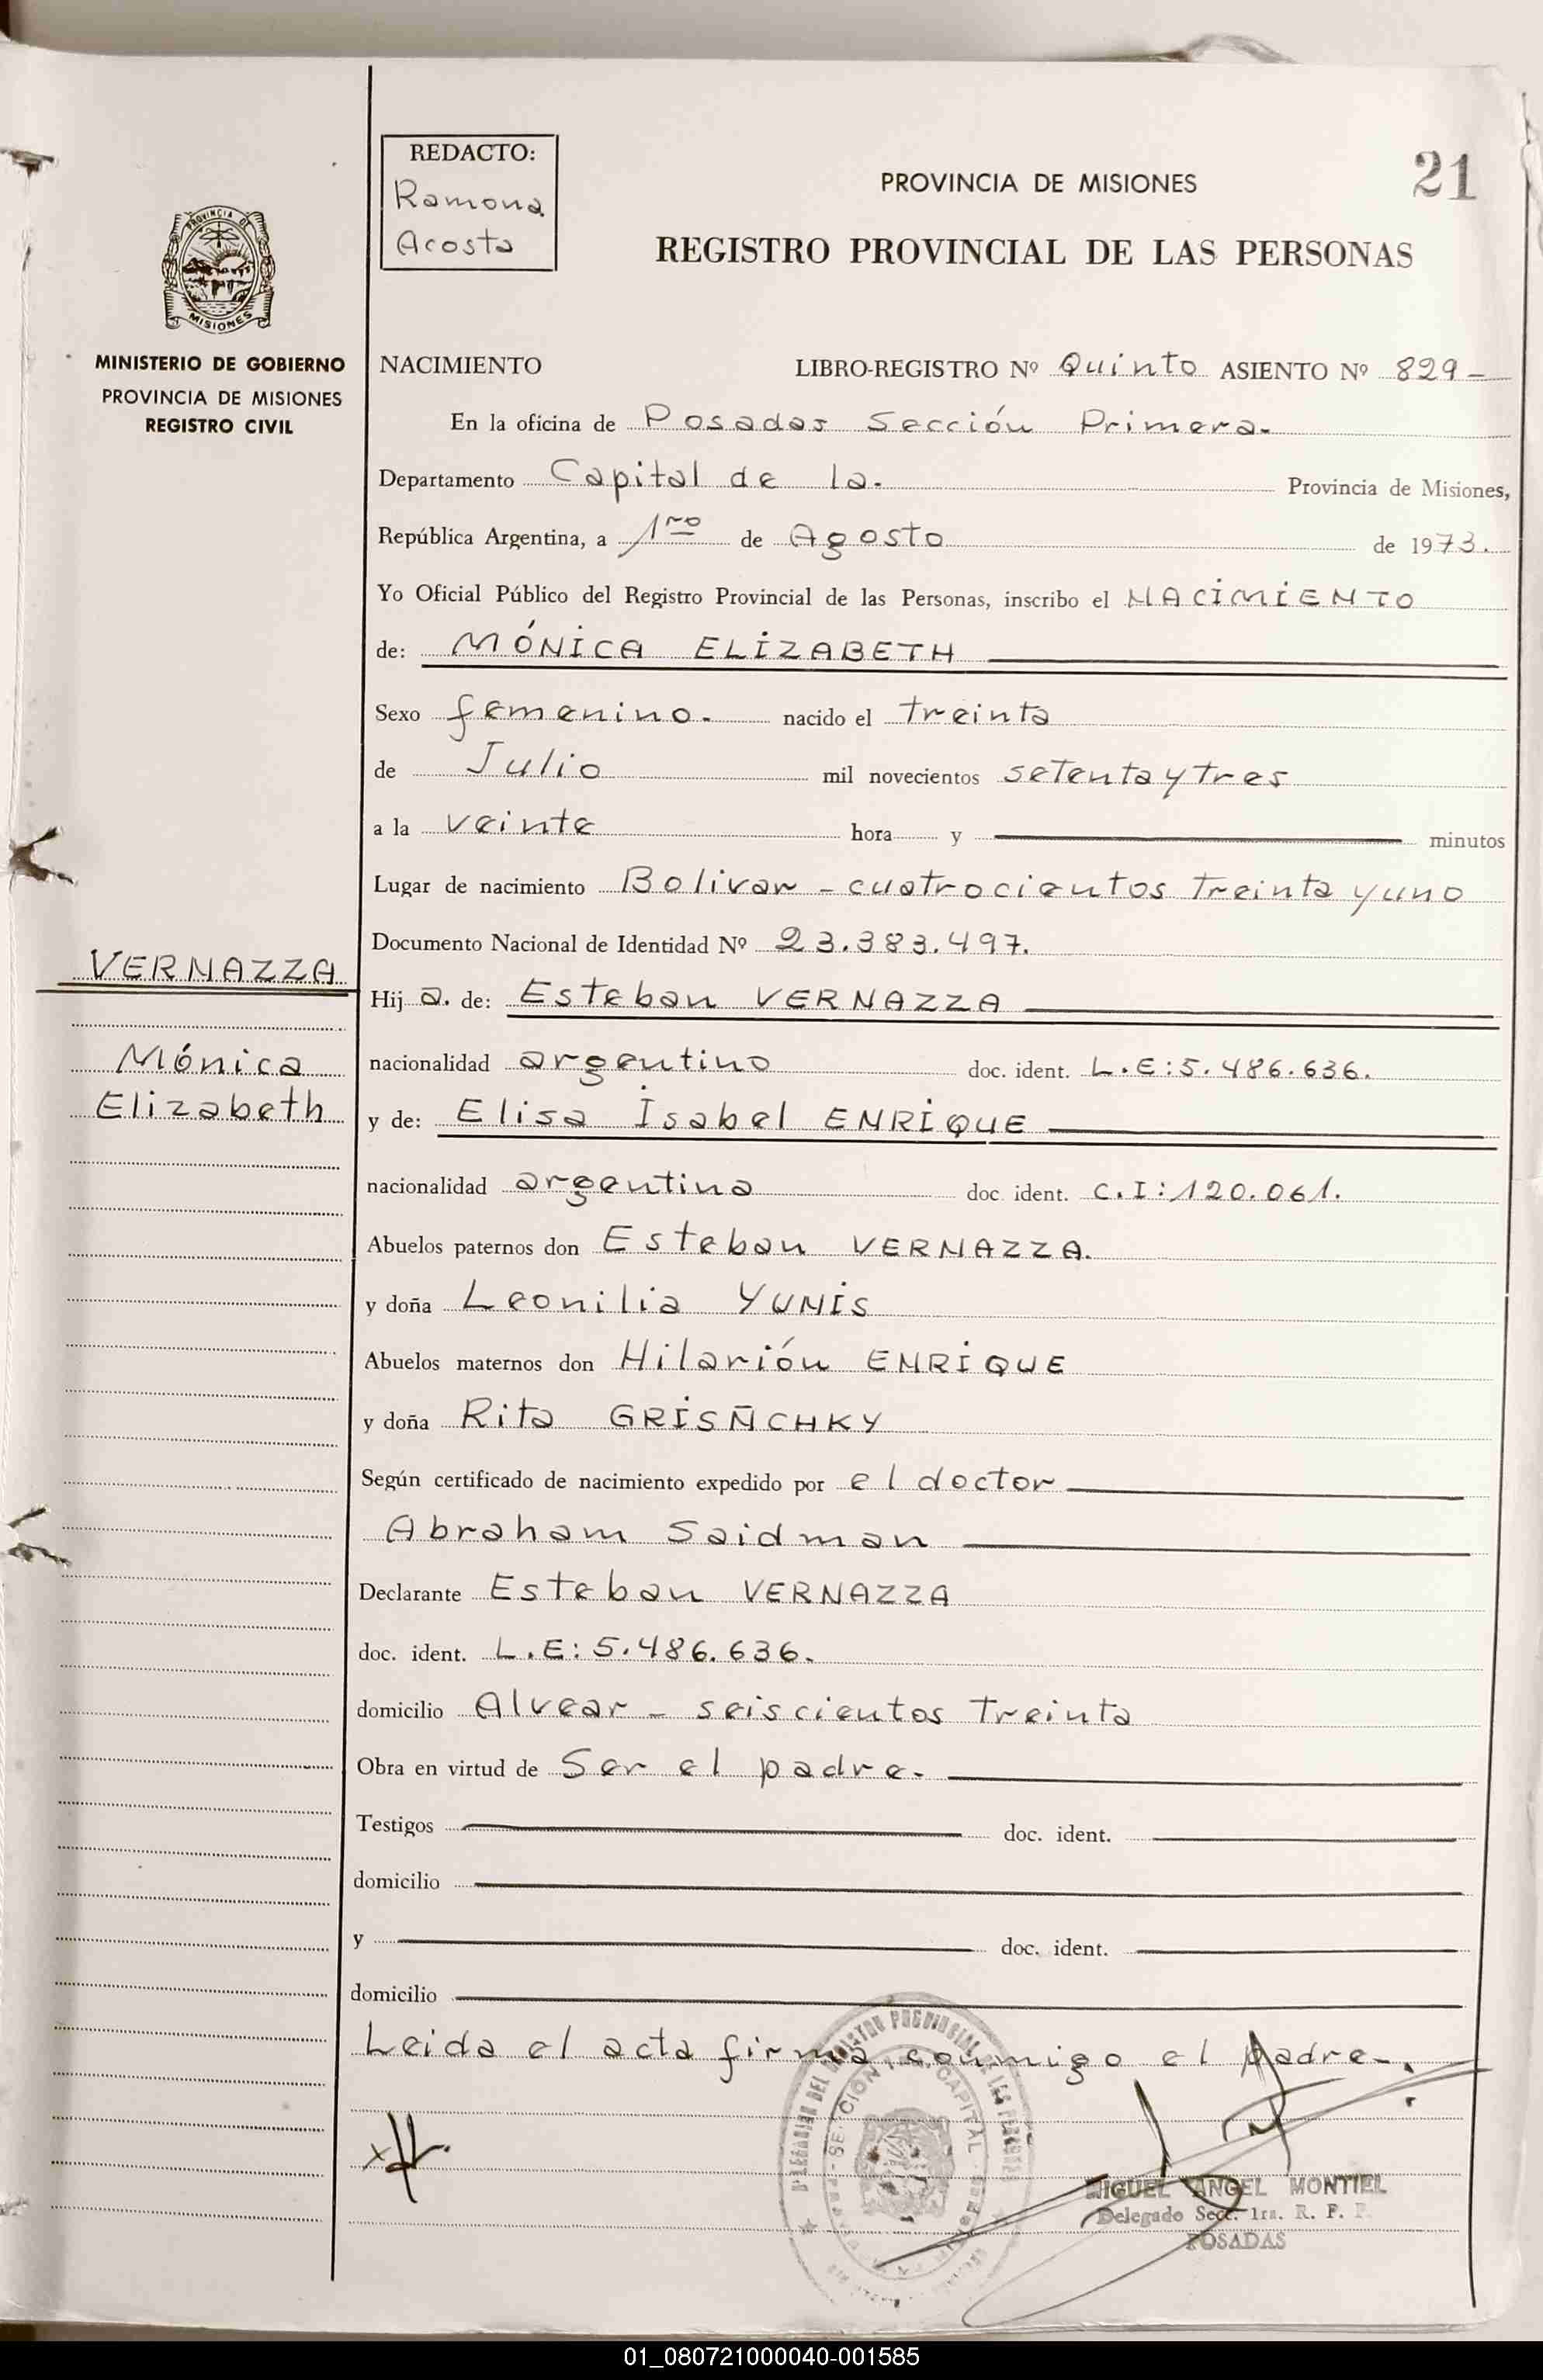 REDACTO:
Ramona
Acosta
PROVINCIA DE MISIONES
21
REGISTRO PROVINCIAL DE LAS PERSONAS
PROVINCIA DE
MISIONES
MINISTERIO DE GOBIERNO
PROVINCIA DE MISIONES
REGISTRO CIVIL
NACIMIENTO LIBRO-REGISTRO Nº Quinto ASIENTO Nº 829-
En la oficina de Posadas Sección Primera.
Departamento Capital de la. Provincia de Misiones,
República Argentina, a 1ro de Agosto de 1973.
Yo Oficial Público del Registro Provincial de las Personas, inscribo el NACIMIENTO
de: MÓNICA ELIZABETH
Sexo femenino. nacido el treinta
de Julio mil novecientos setenta y tres
a la veinte hora y minutos
Lugar de nacimiento Bolivar - cuatrocientos treinta y uno
Documento Nacional de Identidad Nº 23.383.497.
VERNAZZA
Hij a. de: Esteban VERNAZZA
Mónica
Elizabeth
nacionalidad argentino doc. ident. L.E:5.486.636.
y de: Elisa Isabel ENRIQUE
nacionalidad argentina doc. ident. C.I:120.061.
Abuelos paternos don Esteban VERNAZZA.
y doña Leonilia YUNIS
Abuelos maternos don Hilarión ENRIQUE
y doña Rita GRISÑCHKY
Según certificado de nacimiento expedido por el doctor
Abraham Saidman
Declarante Esteban VERNAZZA
doc. ident. L.E:5.486.636.
domicilio Alvear - seiscientos treinta
Obra en virtud de Ser el padre.
Testigos doc. ident.
domicilio
y doc. ident.
domicilio
Leida el acta firma conmigo el padre-.
MIGUEL ANGEL MONTIEL
Delegado Secc. 1ra. R. P. P.
POSADAS
01_080721000040-001585